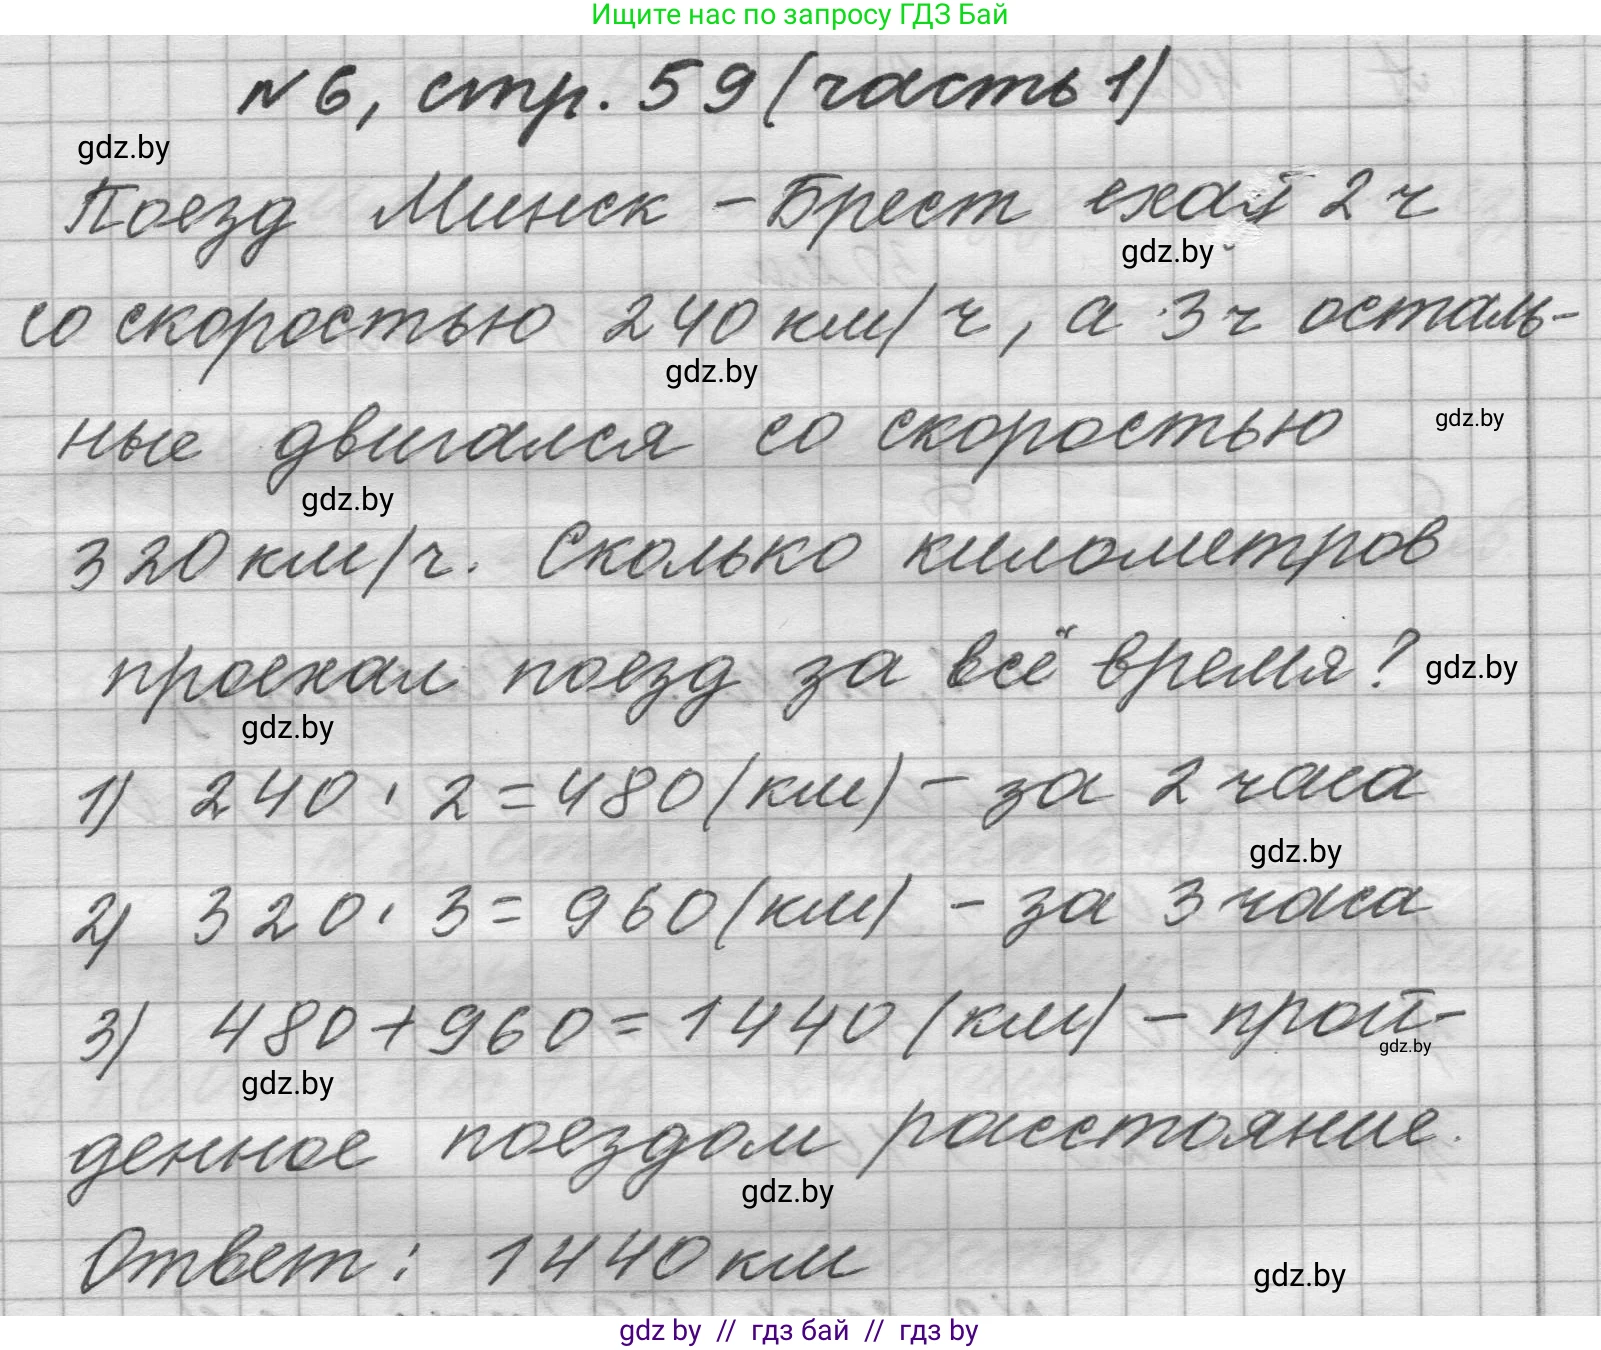 Ищите нас по запросу ГДЗ Бай
№6, стр. 59 (часть 1)
gdz.by
Поезд Минск - Брест ехал 2 ч
gdz.by
со скоростью 240 км/ч, а 3 ч осталь-
gdz.by
ные двигался со скоростью
gdz.by
gdz.by
320 км/ч. Сколько километров
проехал поезд за всё время?
gdz.by
gdz.by
1) 240 · 2 = 480 (км) - за 2 часа
gdz.by
2) 320 · 3 = 960 (км) - за 3 часа
3) 480 + 960 = 1440 (км) - прой-
gdz.by
gdz.by
денное поездом расстояние.
gdz.by
Ответ: 1440 км
gdz.by
gdz by // гдз бай // гдз by